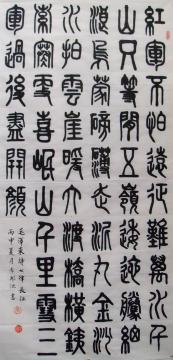 紅軍不怕遠征難萬水千
山只等閒五嶺逶迤騰細
浪烏蒙磅礴走泥丸金沙
水拍雲崖暖大渡橋橫鐵
索寒更喜岷山千里雪三
軍過後盡開顏
毛澤東詩七律長征
丙申夏月 書